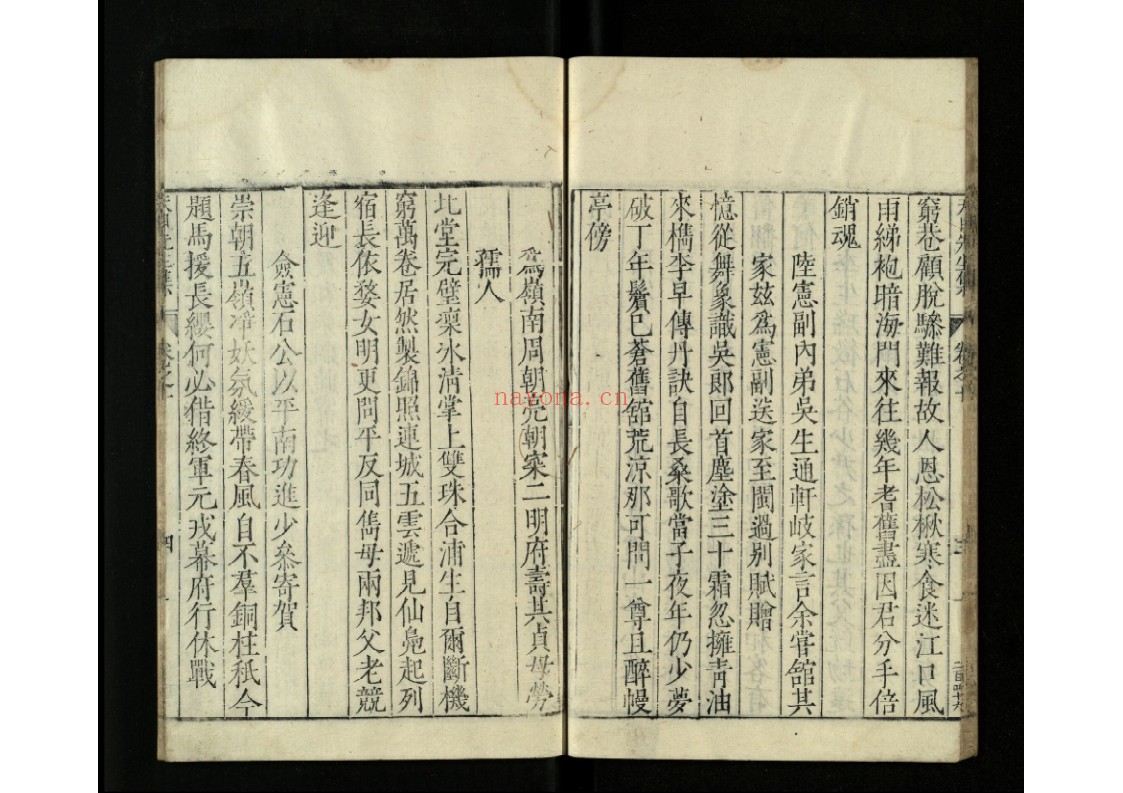 窮巷顧脫驂難報故人恩松楸寒食迷江口風
雨綈袍暗海門來往幾年耆舊盡因君分手倍
銷魂
陸憲副內弟吳生通軒岐家言余嘗舘其
家茲為憲副送家至閩過別賦贈
憶從舞象識吳郎回首塵塗三十霜忽擁青油
來檇李早傳丹訣自長桑歌當子夜年仍少夢
破丁年鬢已蒼舊舘荒涼那可問一尊且醉幔
亭傍
為嶺南周朝完朝寀二明府壽其貞母勞
孺人
北堂完璧凜冰清掌上雙珠合浦生自爾斷機
窮萬卷居然製錦照連城五雲遞見仙鳧起列
宿長依婺女明更問平反同雋母兩邦父老競
逢迎
僉憲石公以平南功進少參寄賀
崇朝五嶺凈妖氛緩帶春風自不羣銅柱秖今
題馬援長纓何必借終軍元戎幕府行休戰
卷之十
四
nayona.cn